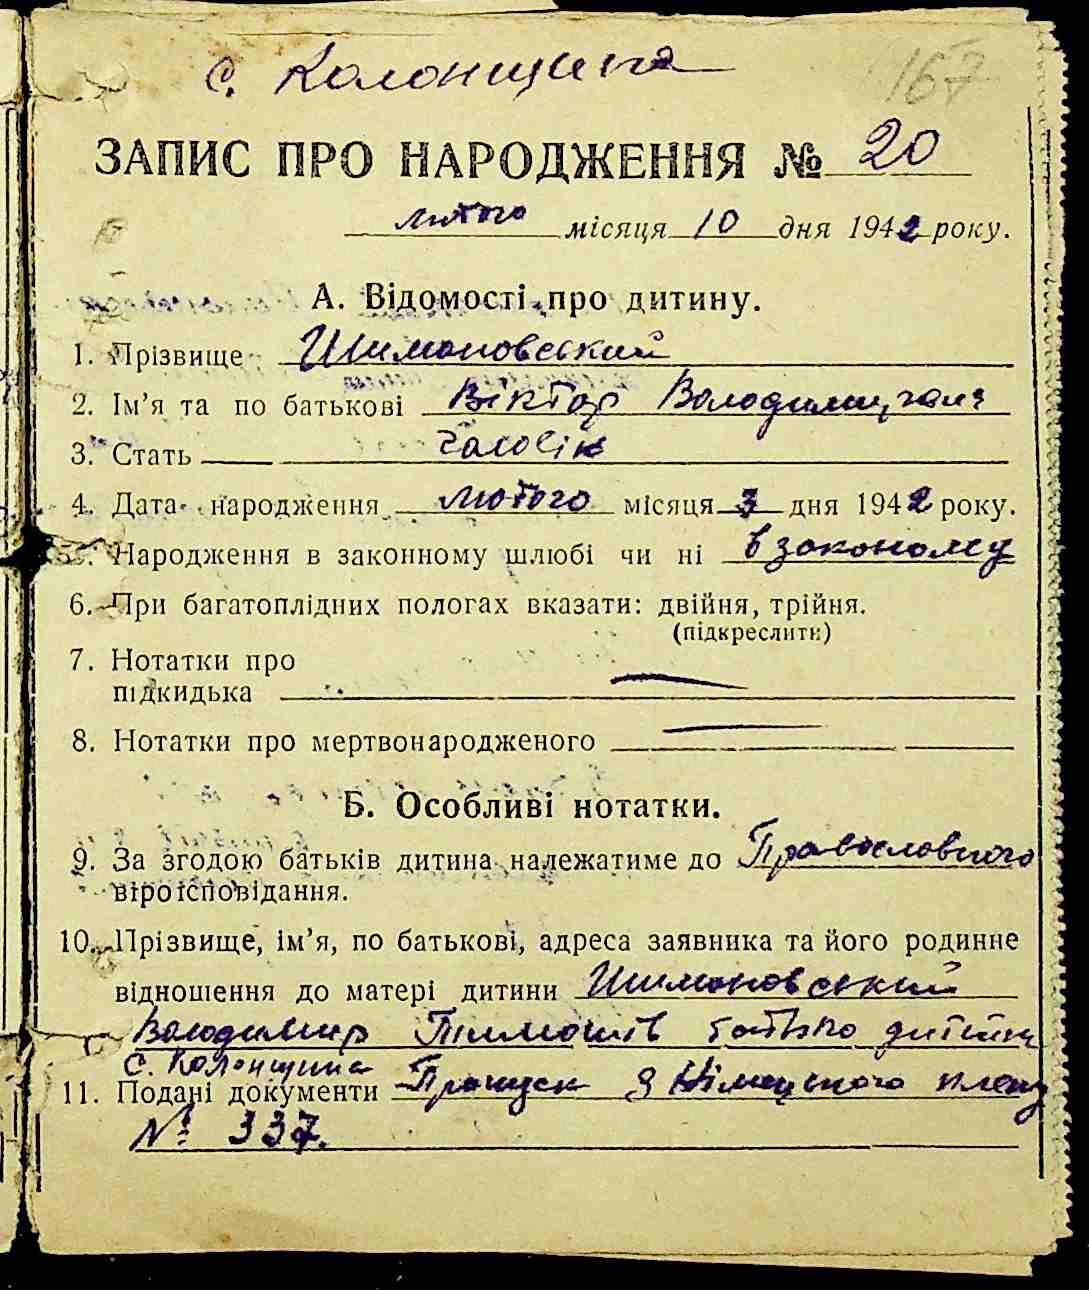 с. Колонщина
167
ЗАПИС ПРО НАРОДЖЕННЯ № 20
лютого місяця 10 дня 1942 року.
А. Відомості про дитину.
1. Прізвище Шимановський
2. Ім'я та по батькові Віктор Володимирович
3. Стать чоловік
4. Дата народження лютого місяця 3 дня 1942 року.
5. Народження в законному шлюбі чи ні в законому
6. При багатоплідних пологах вказати: двійня, трійня.
(підкреслити)
7. Нотатки про
підкидька —
8. Нотатки про мертвонародженого —
Б. Особливі нотатки.
9. За згодою батьків дитина належатиме до Православного
віроісповідання.
10. Прізвище, ім'я, по батькові, адреса заявника та його родинне
відношення до матері дитини Шимановський
Володимир Тимошів батько дитини
с. Колонщина
11. Подані документи Пропуск з Німецького плену
№ 337.